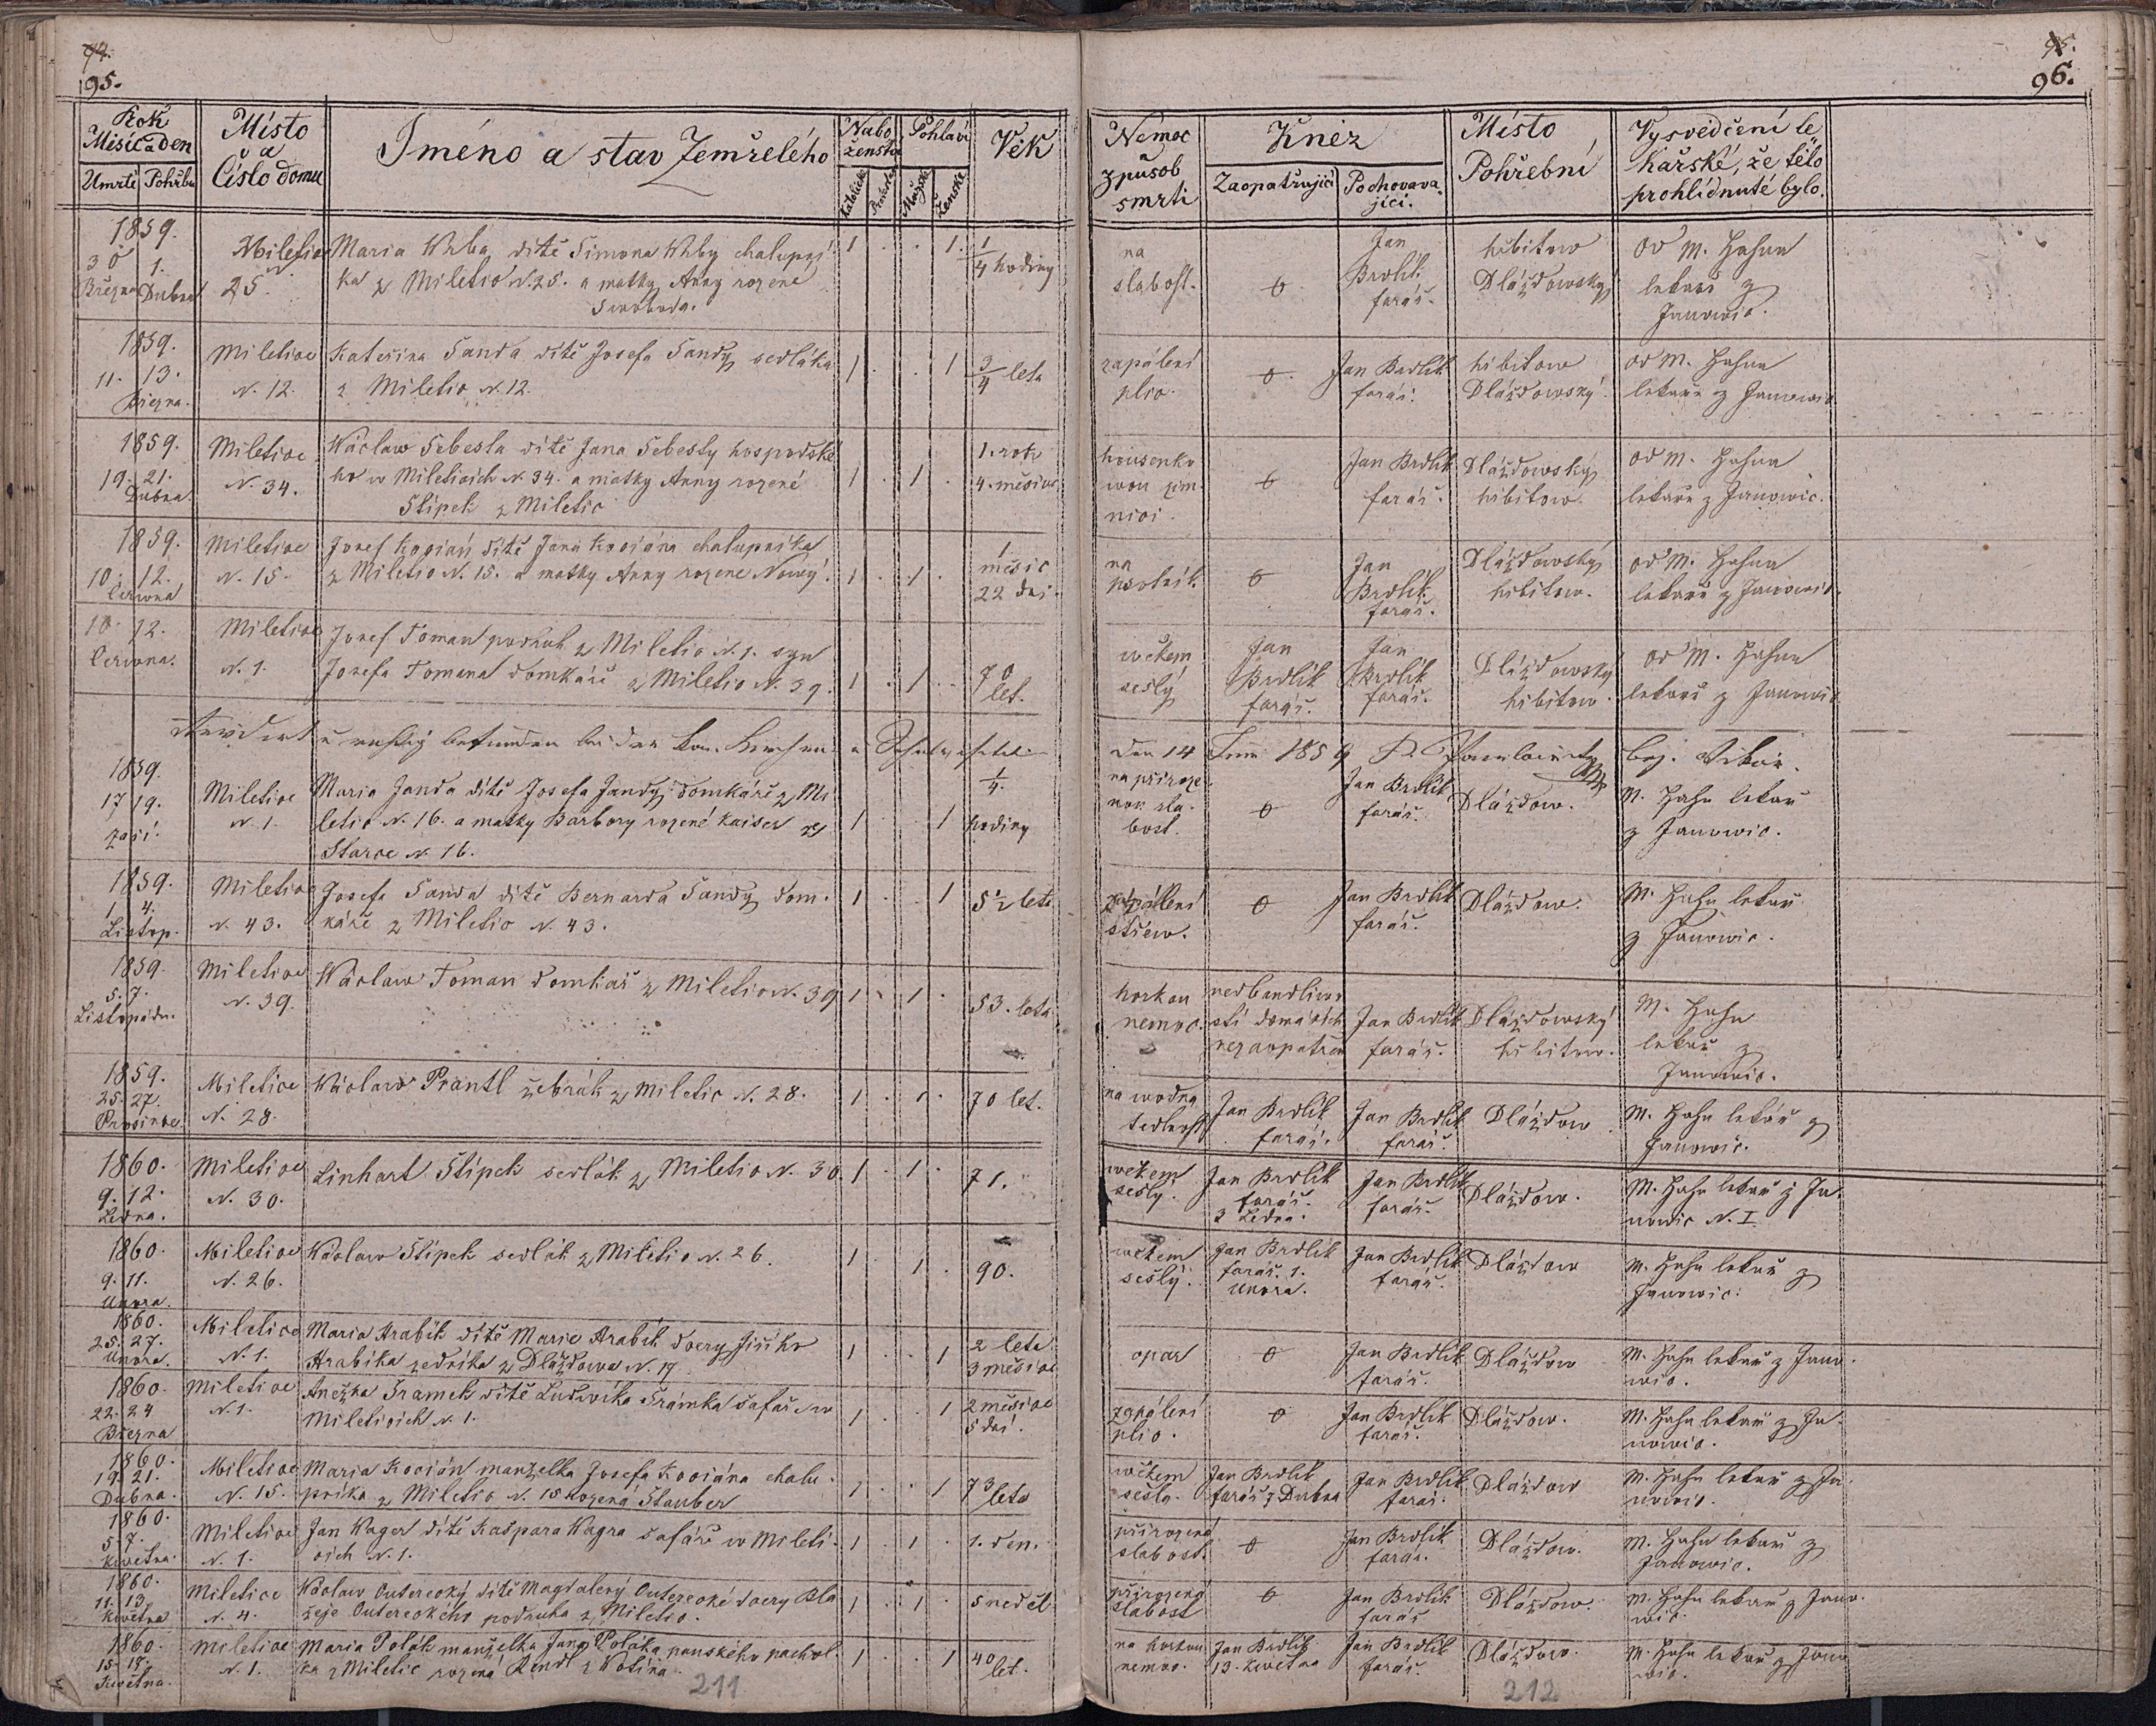 94.
95.
Rok
Měsíc a den
Umrtí Pohřbu
Místo
a
Číslo domu
Jméno a stav Zemřelého
Nabo
ženstvo
Katolické
Pohlaví
Mužské
Ženské
Věk
1859.
30 1.
Března Dubna
Miletic
25
Maria Wrba dítě Simona Wrby chalupní
ka z Miletic N. 25. a matky Anny rozené
Swoboda.
1 . . 1.
1/4 hodiny
1859.
11. 13.
Března.
Miletice
N. 12.
Kateřina Sanda dítě Josefa Sandy sedláka
z Miletic N. 12.
1 . . 1
3/4 leta
1859.
19. 21.
Dubna
Miletice
N. 34.
Wáclaw Sebesta dítě Jana Sebesty hospodské
ho w Mileticích N. 34. a matky Anny rozené
Stípek z Miletic
1 . 1 .
1. rok
4. měsíce
1859.
10. 12.
Června
Miletice
N. 15.
Josef Kocián dítě Jana Kociána chalupníka
z Miletic N. 15. a matky Anny rozene Nowý.
1 . 1 .
1
měsíc
22 dní.
10. 12.
Června.
Miletice
N. 1.
Josef Toman podruh z Miletic N. 1. syn
Josefa Tomana domkáře z Miletic N. 39.
1 . 1 . .
70
let.
1859.
17 19.
září.
Miletice
N. 1.
Maria Janda dítě Josefa Jandy domkáře z Mi
letic N. 16. a matky Barbory rozené Kaiser ze
Starce N. 16.
1 . . 1
1/4.
hodiny
1859.
1. 4.
Listop.
Miletice
N. 43.
Josefa Sanda dítě Bernarda Sandy dom.
káře z Miletic N. 43.
1 . . 1
5 1/2 leta
1859.
5. 7.
Listopadu.
Miletice
N. 39.
Wáclaw Toman domkář z Miletic N. 39
1 . 1 .
53. leta
1859.
25. 27.
Prosince
Miletice
N. 28.
Wáclaw Prantl žebrák z Miletic N. 28.
1 . 1 .
70 let.
1860.
9. 12.
Ledna.
Miletice
N. 30.
Linhart Stípek sedlák z Miletic N. 30.
1 . 1 .
71.
1860.
9. 11.
Února.
Miletice
N. 26.
Wáclaw Stípek sedlák z Miletic N. 26.
1 . 1 .
90.
1860.
25. 27.
Února.
Miletice
N. 1.
Maria Hrabík dítě Marie Hrabík dcery Jiřího
Hrabíka zedníka z Dlažďowa N. 17.
1 . . 1
2 leta
3 měsíce
1860.
22. 24
Března
Miletice
N. 1.
Anežka Šramek dítě Ludwíka Šrámka šafáře w
Mileticích N. 1.
1 . . 1
2 měsíce
5 dní.
1860.
19. 21.
Dubna.
Miletice
N. 15.
Maria Kocián manželka Josefa Kociána chalu.
pníka z Miletic N. 15 rozená Stauber
1 . . 1
73
leta
1860.
5. 7.
Května.
Miletice
N. 1.
Jan Wager dítě Kašpara Wagra šafáře w Mileti.
cích N. 1.
1 . 1 .
1. den.
1860.
11. 13.
Května
Miletice
N. 4.
Wáclaw Outerecký dítě Magdaleny Outerecké dcery Bla
žeje Outereckého podruha z Miletic.
1 . 1 .
5 neděl
1860.
15. 18.
Května.
Miletice
N. 1.
Maria Polák manželka Jana Poláka panského pachol.
ka z Miletic rozená Rendl z Kolína.
1 . . 1
40
let.
211
95.
96.
Nemoc
způsob
smrti
Kněz
Zaopatřující
Pochovava
jící.
Místo
Pohřební
Vysvědčení lé
kařské, že tělo
prohlídnuté bylo.
na
slabost.
0
Jan
Brdlík
farář.
hřbitow
Dlážďowský
od M. Hahna
lekaře z
Janowic.
zapálení
plic.
0
Jan Brdlík
farář.
hřbitow
Dlážďowský.
od M. Hahna
lekaře z Janowic
0
Jan Brdlík
farář.
Dlážďowský
hřbitow.
od M. Hahna
lekaře z Janowic.
na
psotník.
0
Jan
Brdlík
farář.
Dlážďowský
hřbitow.
od M. Hahna
lekaře z Janowic.
wěkem
sešlý
Jan
Brdlík
farář.
Jan
Brdlík
farář.
Dlážďowský
hřbitow.
od M. Hahna
lekaře z Janowic
den 14 Juni 1859
na přiroze
nou sla.
bost.
0
Jan Brdlík
farář.
Dlážďow.
M. Hahn lekař
z Janowic.
zapálení
střew.
0
Jan Brdlík
farář.
Dlážďow.
M. Hahn lekař
z Janowic.
horkou
nemoc.
nedbandliwo
stí domácích
nezaopatřen
Jan Brdlík
farář.
Dlážďowský
hřbitow.
M. Hahn
lekař z
Janowic.
na wodna
tedlnost
Jan Brdlík
farář.
Jan Brdlík
farář.
Dlážďow
M. Hahn lekař z
Janowic.
wěkem
sešlý.
Jan Brdlík
farář.
3 Ledna.
Jan Brdlík
farář.
Dlážďow.
M. Hahn lekař z Ja.
nowic N. I.
wěkem
sešlý.
Jan Brdlík
farář. 1.
Unora.
Jan Brdlík
farář.
Dlážďow
M. Hahn lekař z
Janowic.
opar
0
Jan Brdlík
farář.
Dlážďow
M. Hahn lekař z Jano.
wic.
zapálení
plic.
0
Jan Brdlík
farář.
Dlážďow.
M. Hahn lekař z Ja.
nowic.
wěkem
sešlá.
Jan Brdlík
farář z Dubna
Jan Brdlík
farář.
Dlážďow
M. Hahn lekař z Ja.
nowic.
přirozená
slabost.
0
Jan Brdlík
farář.
Dlážďow.
M. Hahn lekař z
Janowic.
přirozená
slabost
0
Jan Brdlík
farář
Dlážďow.
M. Hahn lekař z Jano.
wic.
na horkou
nemoc.
Jan Brdlík
13. Května
Jan Brdlík
farář.
Dlážďow.
M. Hahn lekař z Jano
wic.
212